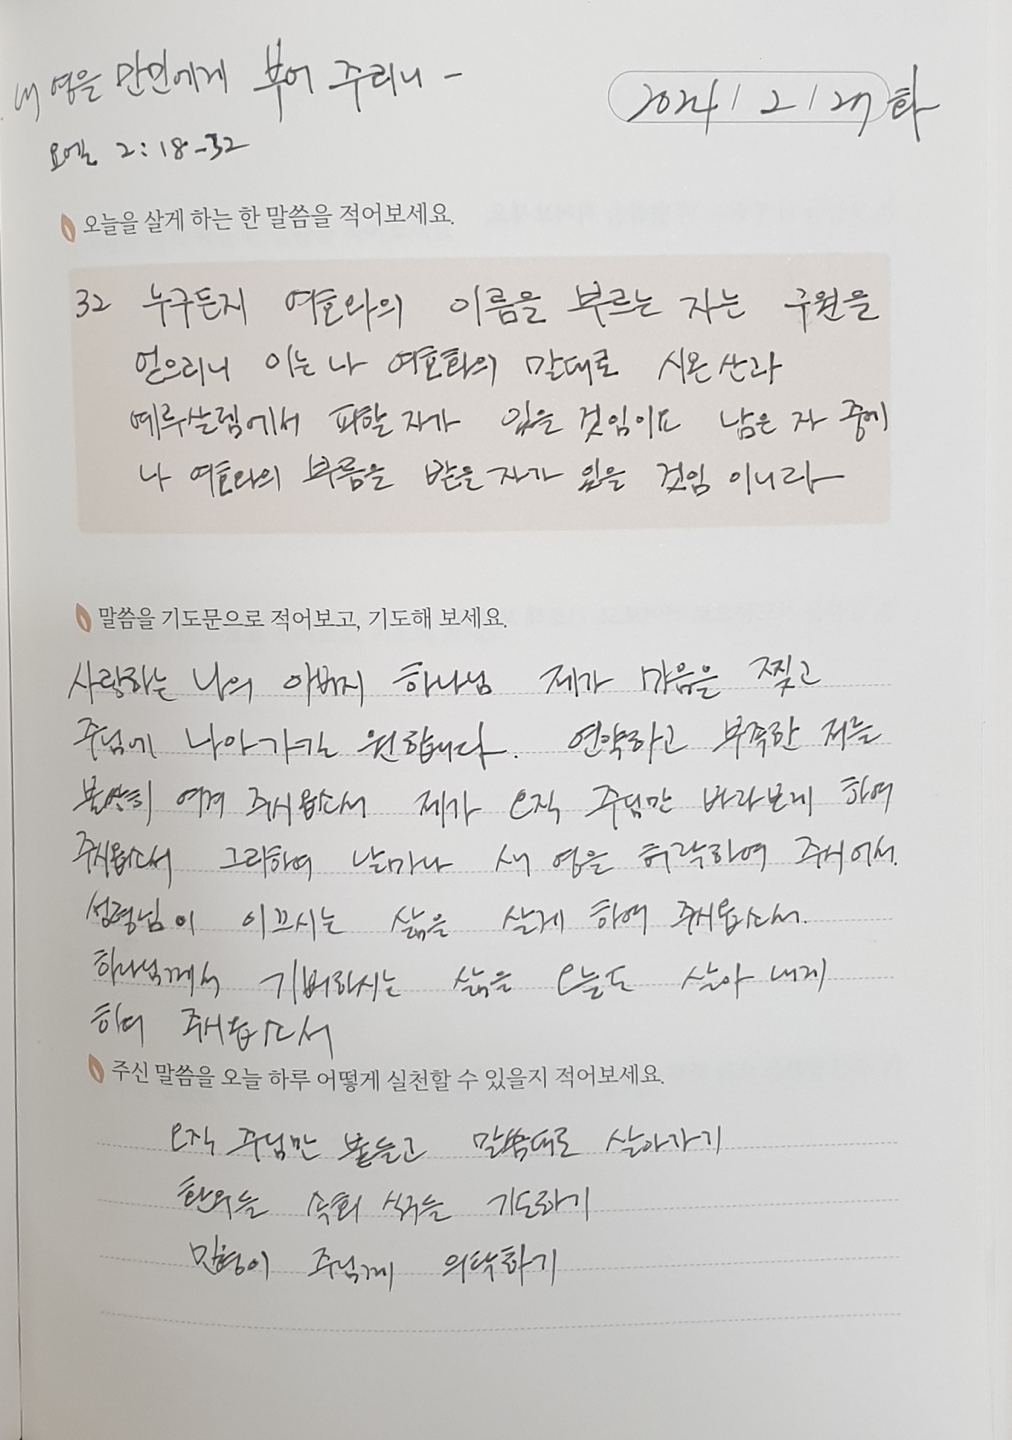 내 영을 만민에게 부어 주리니 -
2024 / 2 / 27 화
요엘 2:18-32
오늘을 살게 하는 한 말씀을 적어보세요.
32 누구든지 여호와의 이름을 부르는 자는 구원을
얻으리니 이는 나 여호와의 말대로 시온 산과
예루살렘에서 피할 자가 있을 것임이요 남은 자 중에
나 여호와의 부름을 받을 자가 있을 것임 이니라
말씀을 기도문으로 적어보고, 기도해 보세요.
사랑하는 나의 아버지 하나님 제가 마음을 찢고
주님께 나아가기 원합니다. 연약하고 부족한 저를
불쌍히 여겨 주시옵소서 제가 오직 주님만 바라보게 하여
주시옵소서 그리하여 날마다 새 영을 허락하여 주시어서.
성령님이 이끄시는 삶을 살게 하여 주시옵소서.
하나님께서 기뻐하시는 삶을 오늘도 살아 내게
하여 주시옵소서
주신 말씀을 오늘 하루 어떻게 실천할 수 있을지 적어보세요.
오직 주님만 붙들고 말씀대로 살아가기
속회 식구들 기도하기
주님께 의탁하기